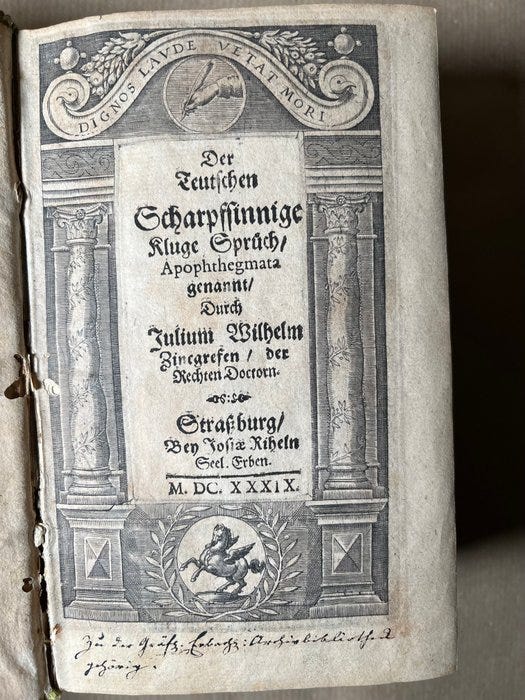 DIGNOS LAVDE VETAT MORI
Der
Teutschen
Scharpffinnige
Kluge Sprüch/
Apophthegmata
genannt/
Durch
Julium Wilhelm
Zincgrefen / der
Rechten Doctorn.
Straßburg/
Bey Josiæ Riheln
Seel. Erben.
M. DC. XXXIX.
Zu der Gräfl. Erbach: Archivbibliothek
gehörig.